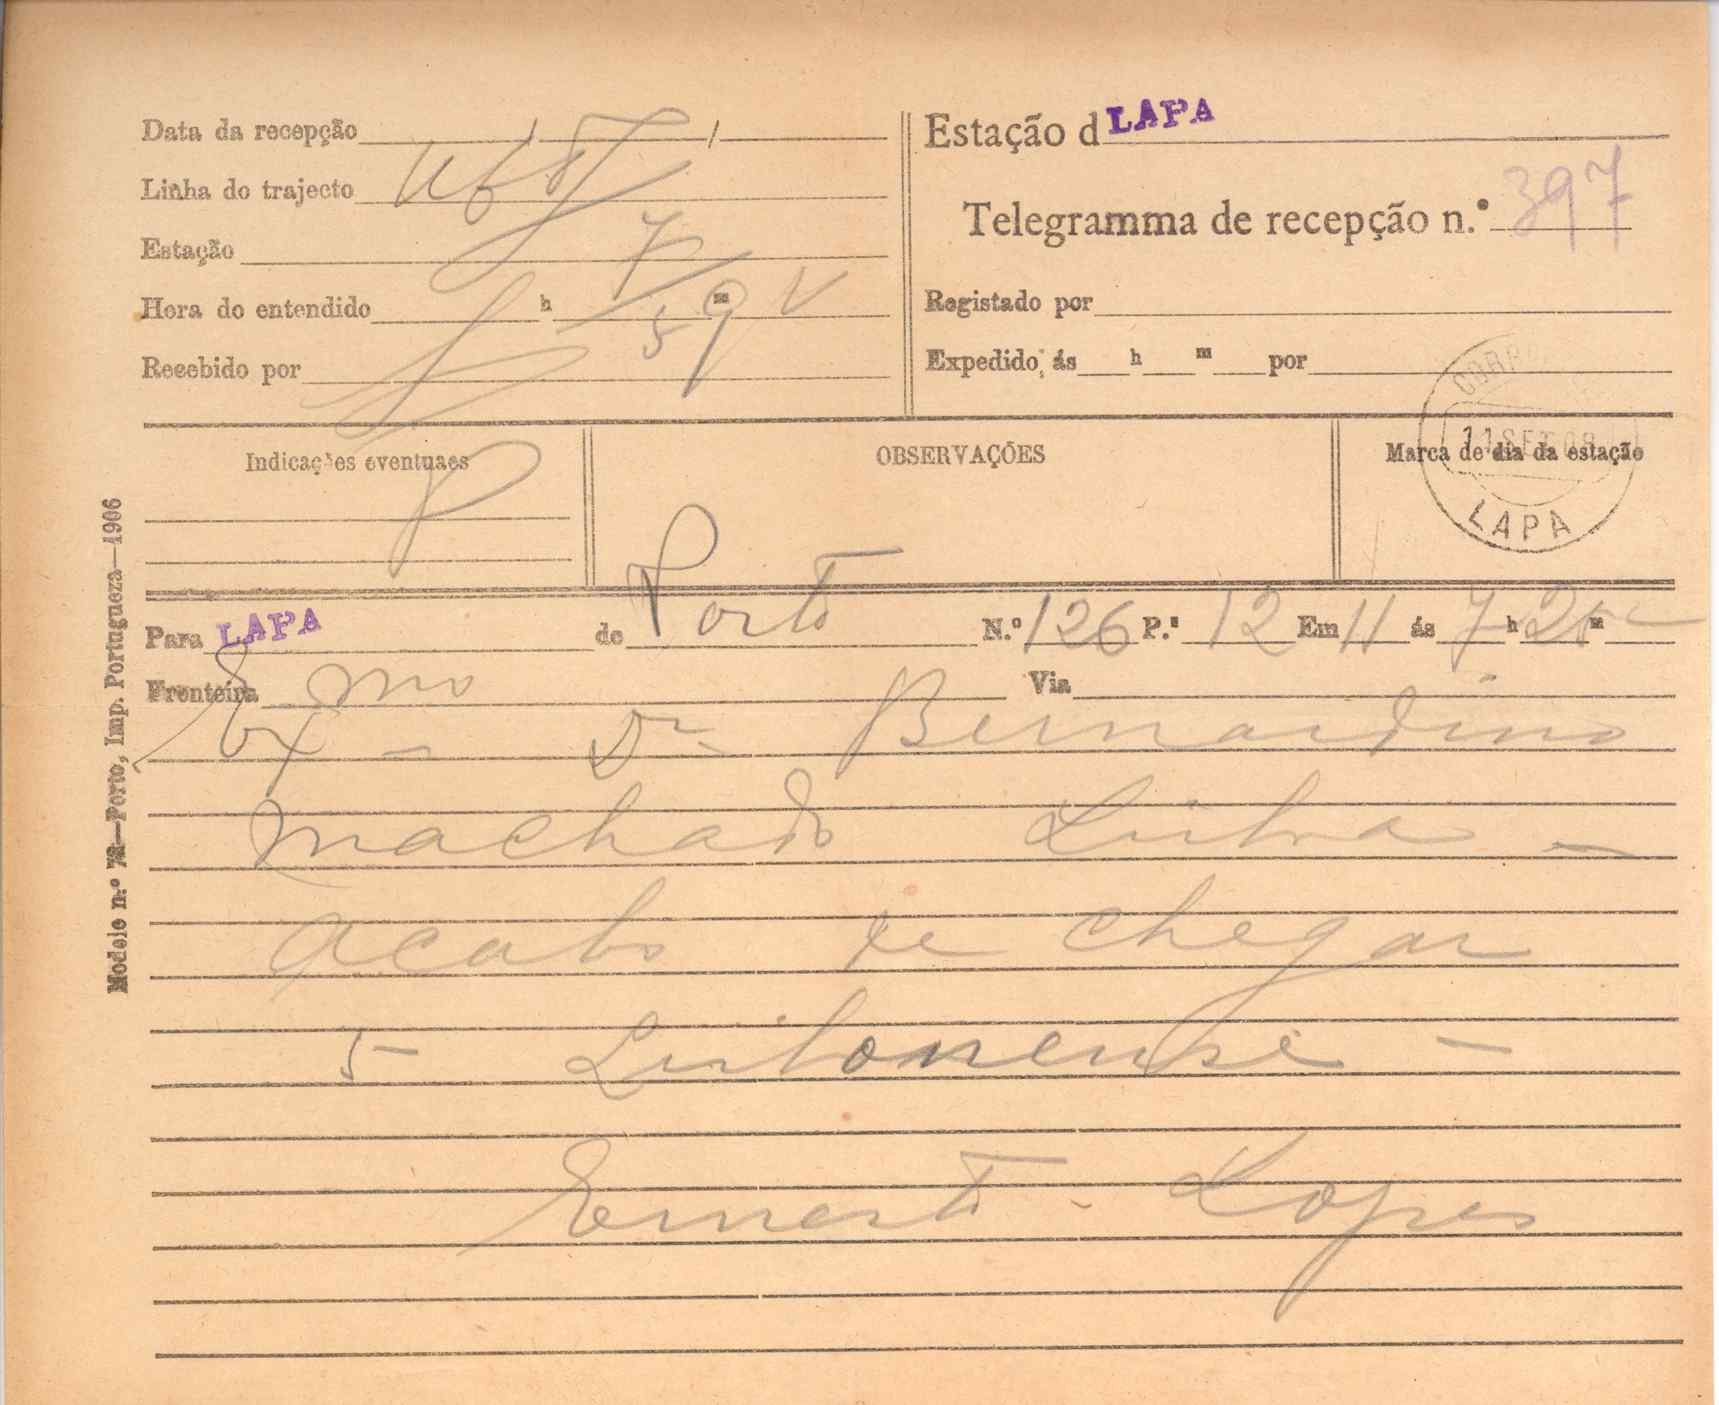 Data da recepção / /
Linha do trajecto
Estação 7
Hora do entendido h m 59 V
Recebido por
Estação d LAPA
Telegramma de recepção n.º 397
Registado por
Expedido, ás h m por
Indicações eventuaes
OBSERVAÇÕES
Marca de dia da estação
11 SET 08
LAPA
Para LAPA de Porto N.º 126 P.s 12 Em 11 ás 7 h 25 m
Fronteira Via
Exmo - Dr Bernardino
Machado Lisboa -
acabo de chegar
5 - Lisbonense -
Ernesto - Lopes
Modelo n.º 72—Porto, Imp. Portugueza—1906